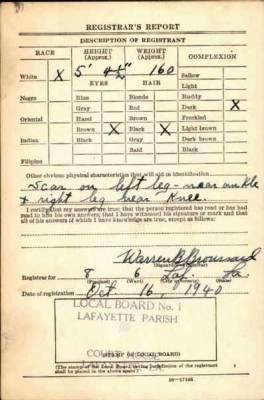 REGISTRAR'S REPORT
DESCRIPTION OF REGISTRANT
RACE HEIGHT (Approx.) WEIGHT (Approx.) COMPLEXION
White X 5' 4½" 160 Sallow
EYES HAIR Light
Negro Blue Blonde Ruddy
Gray Red Dark X
Oriental Hazel Brown Freckled
Brown X Black X Light brown
Indian Black Gray Dark brown
Bald Black
Filipino
Other obvious physical characteristics that will aid in identification
Scar on left leg - near ankle
& right leg near Knee.
I certify that my answers are true; that the person registered has read or has had
read to him his own answers; that I have witnessed his signature or mark and that
all of his answers of which I have knowledge are true, except as follows:
Warren B Broussard
Registrar for 8 6 Laf. La.
(Precinct)
Date of registration Oct 16, 1940
LOCAL BOARD No. 1
LAFAYETTE PARISH
STAMP OF LOCAL BOARD
(The stamp of the Local Board having jurisdiction of the registrant
shall be placed in the above space.)